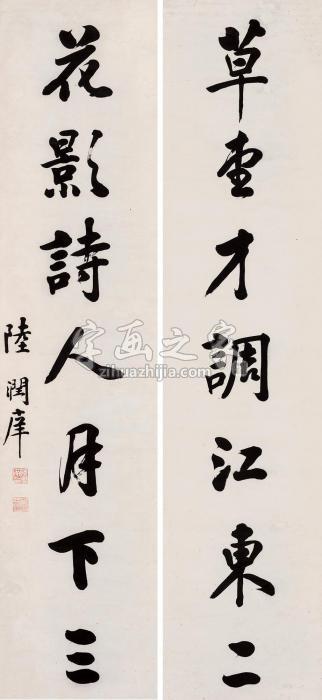 草堂才調江東二
花影詩人月下三
陸潤庠
字画之家
zihuazhijia.com